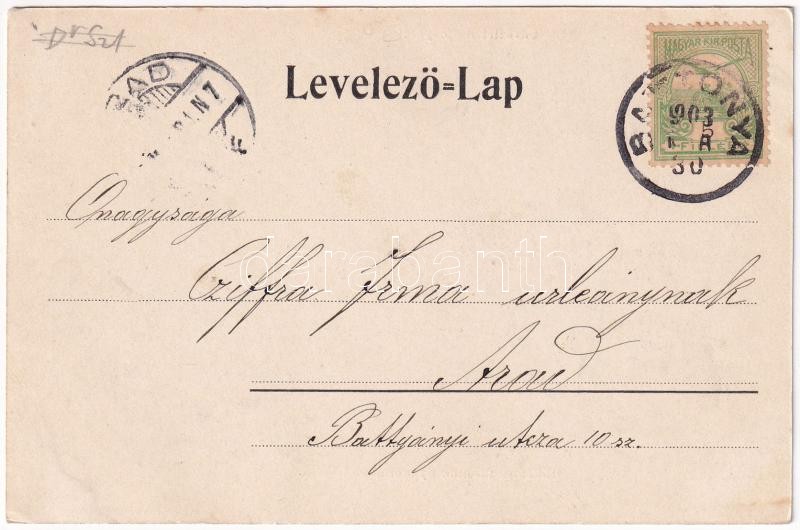 Levelező=Lap
MAGYAR KIR. POSTA
5
FILLÉR
BATTONYA
903
MAR
30
ARAD
Őnagysága
Cziffra Irma urleánynak
Arad
Battyányi utcza 10 sz.
darabanth